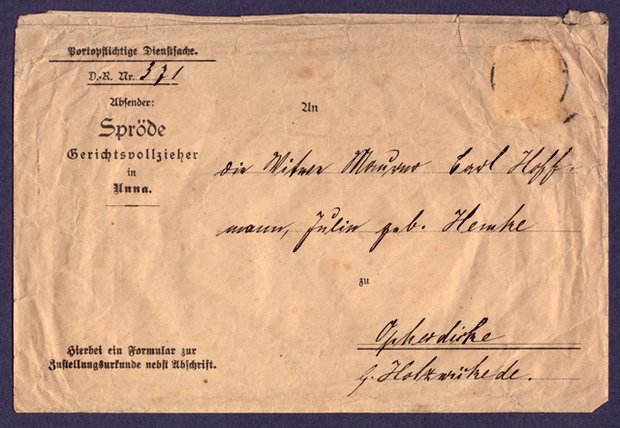 Portopflichtige Dienstsache.
D.-R. Nr. 371
Absender:
Spröde
Gerichtsvollzieher
in
Unna.
An
die Witwe Maurer Carl Hoff-
mann, Julie geb. Hemke
zu
Opherdicke
b. Holzwickede.
Hierbei ein Formular zur
Zustellungsurkunde nebst Abschrift.